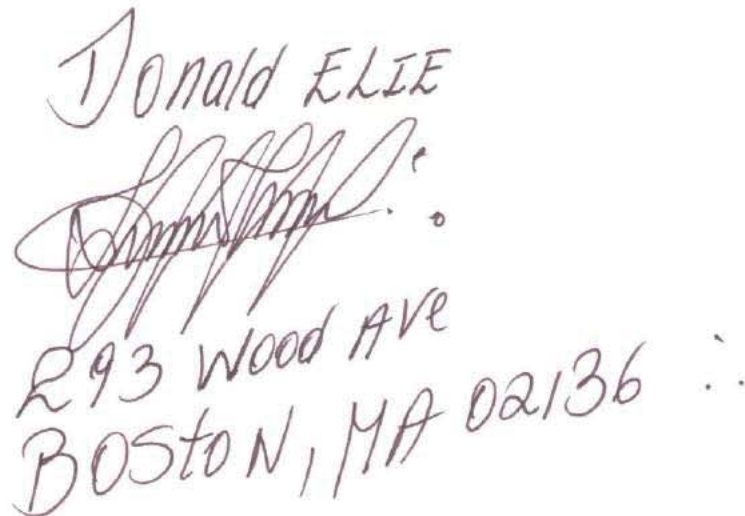 Donald ELIE
293 Wood Ave
BOSTON, MA 02136